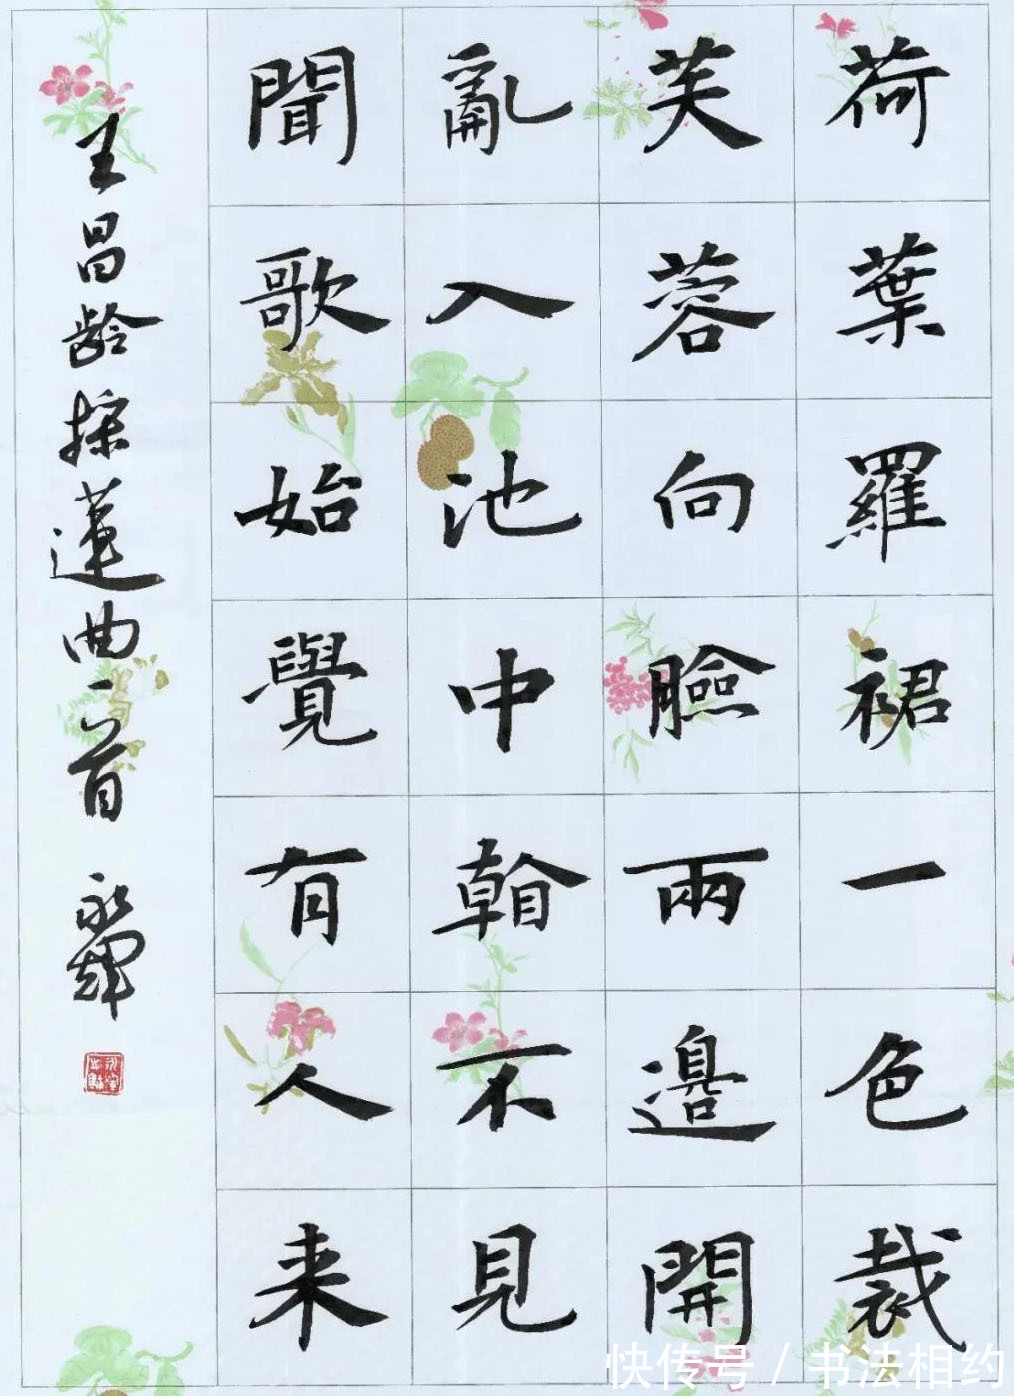 荷葉羅裙一色裁
芙蓉向臉兩邊開
亂入池中看不見
聞歌始覺有人来
王昌龄採蓮曲一首 永輝
快传号 / 书法相约